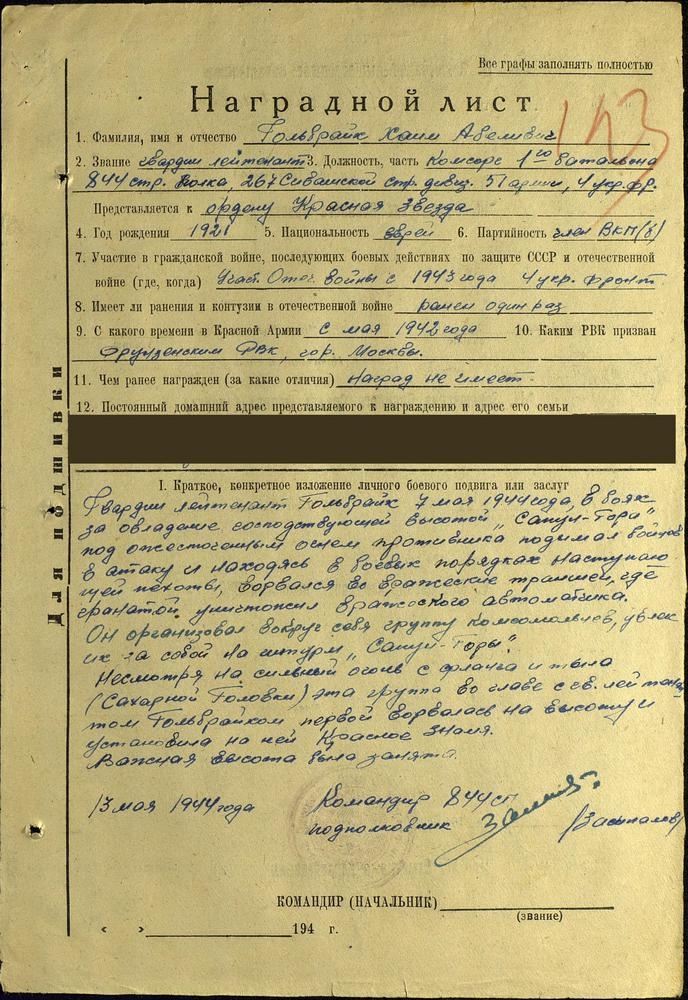 Все графы заполнять полностью
Наградной лист
143
1. Фамилия, имя и отчество Гольбрайх Хаим Абелевич
2. Звание гвардии лейтенант 3. Должность, часть Комсорг 1го батальона
844 стр. полка, 267 Сивашской стр. дивиз. 51 армии, 4 укр. фр.
Представляется к ордену Красная Звезда
4. Год рождения 1921 5. Национальность еврей 6. Партийность член ВКП(б)
7. Участие в гражданской войне, последующих боевых действиях по защите СССР и отечественной
войне (где, когда) Участ. Отеч. войны с 1943 года 4 укр. фронт
8. Имеет ли ранения и контузии в отечественной войне ранен один раз
9. С какого времени в Красной Армии с мая 1942 года 10. Каким РВК призван
Фрунзенским РВК, гор. Москвы.
11. Чем ранее награжден (за какие отличия) наград не имеет.
12. Постоянный домашний адрес представляемого к награждению и адрес его семьи
Для подшивки
I. Краткое, конкретное изложение личного боевого подвига или заслуг
Гвардии лейтенант Гольбрайх 7 мая 1944 года, в боях
за овладение господствующей высотой „Сапун-Гора"
под ожесточенным огнем противника поднимал бойцов
в атаку и находясь в боевых порядках наступаю
щей пехоты, ворвался во вражеские траншеи, где
гранатой уничтожил вражеского автоматчика.
Он организовал вокруг себя группу комсомольцев, увлек
их за собой на штурм „Сапун-Горы".
Несмотря на сильный огонь с фланга и тыла
(Сахарной Головки) эта группа во главе с гв. лейтенан
том Гольбрайхом первой ворвалась на высоту и
установила на ней Красное знамя.
Важная высота была занята.
13 мая 1944 года Командир 844 сп
подполковник
КОМАНДИР (НАЧАЛЬНИК)
(звание)
« » 194 г.